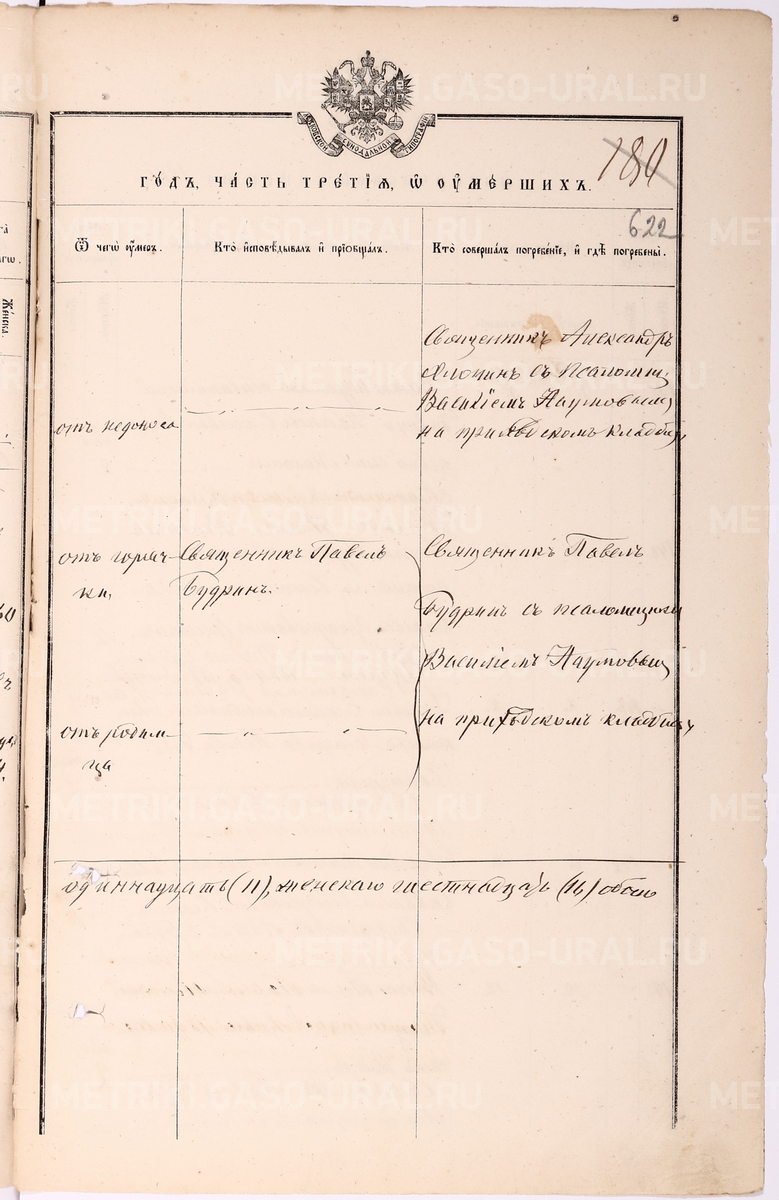 МОСКОВСКОЙ СѴНОДАЛЬНОЙ ТИПОГРАФІИ
ГО́ДЪ, ЧА́СТЬ ТРЕ́ТІѦ, Ѡ҆ ОУ҆МЕ́РШИХЪ.
180
622
Ѿ чегѡ̀ ᲂу҆́меръ.
Кто̀ и҆сповѣ́дывалъ и҆ прїѡбща́лъ.
Кто̀ соверша́лъ погребе́нїе, и҆ гдѣ̀ погребены̀.
Же́нска.
Священникъ Александръ
съ Псаломщ.
Василіемъ Наумовымъ
на приходскомъ кладбищѣ
отъ недоноса
отъ горяч-
ки,
Священникъ Павелъ
Будринъ.
Священникъ Павелъ
Будринъ съ псаломщикомъ
Василіемъ Наумовымъ
на приходскомъ кладбищѣ
отъ родим-
ца
одиннадцать (11), женскаго шестнадцать (16) обоего
METRIKI.GASO-URAL.RU